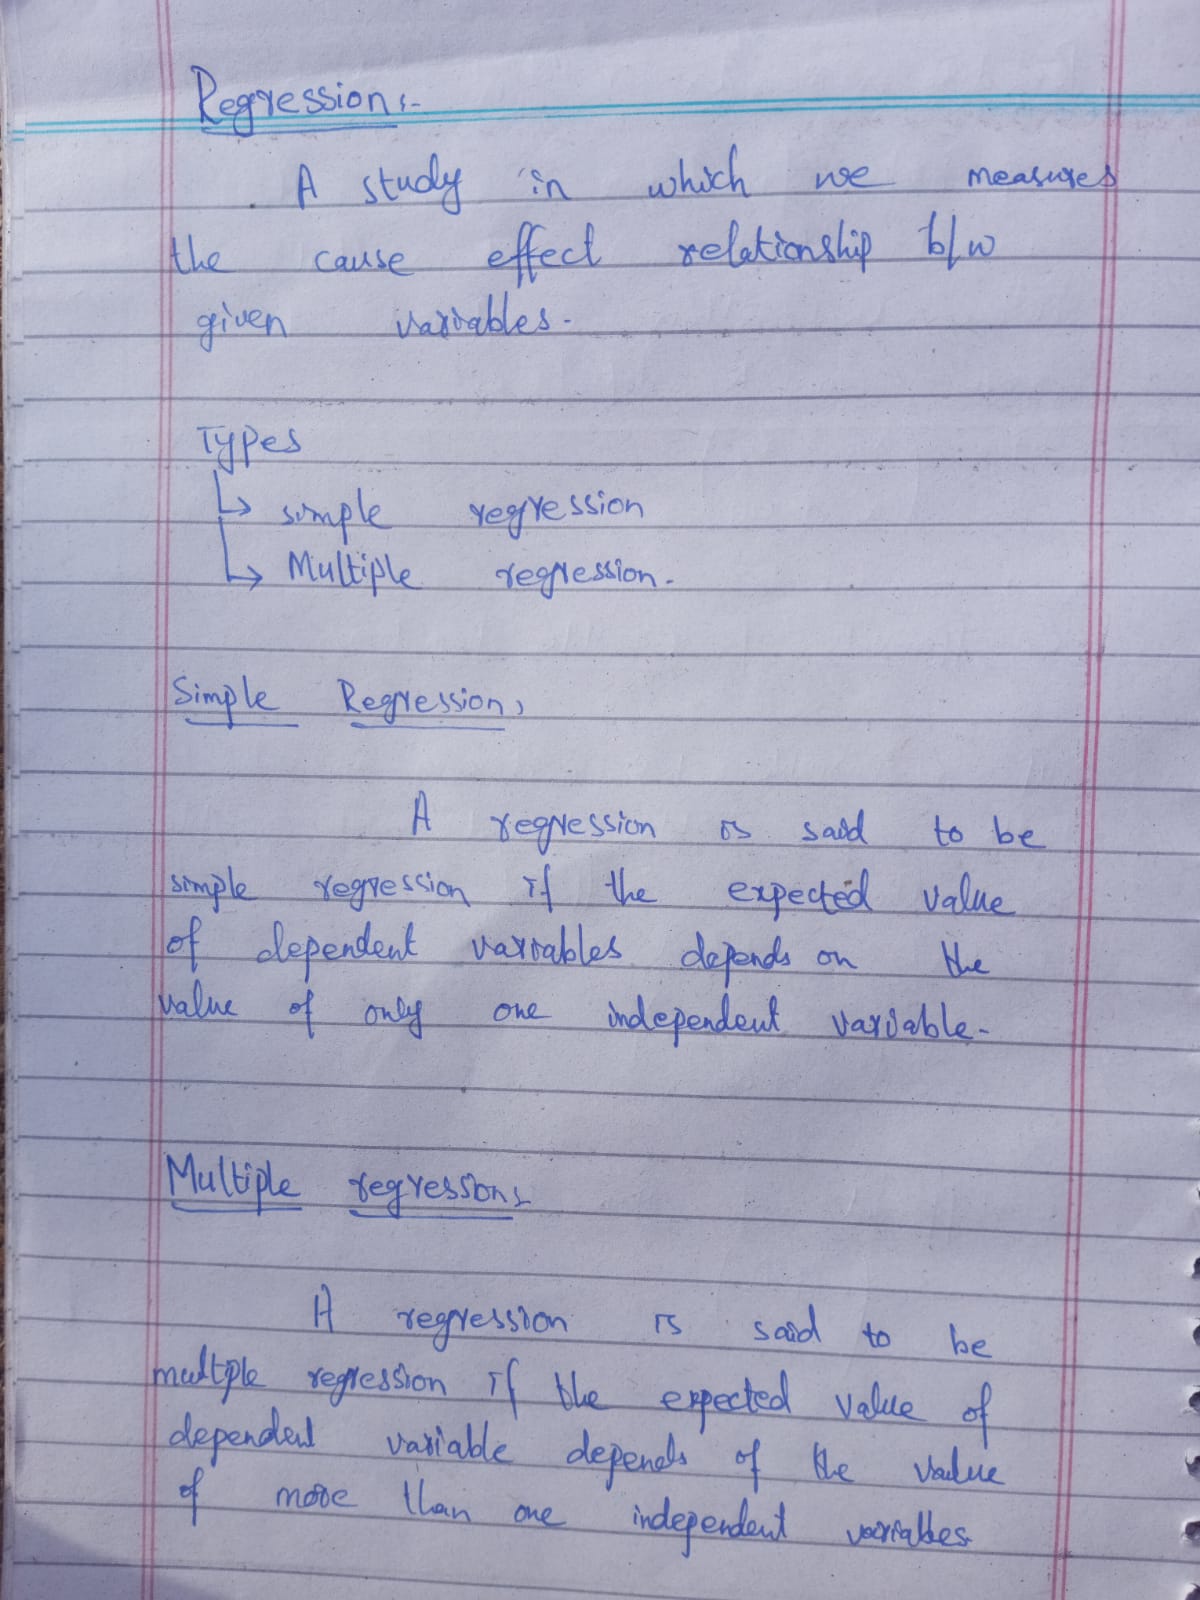 Regression:-
A study in which we measures
the cause effect relationship b/w
given variables.
Types
↳ simple regression
↳ Multiple regression.
Simple Regression,
A regression is said to be
simple regression if the expected value
of dependent variables depends on the
value of only one independent variable.
Multiple regression,
A regression is said to be
multple regression if the expected value of
dependent variable depends of the value
of more than one independent variables